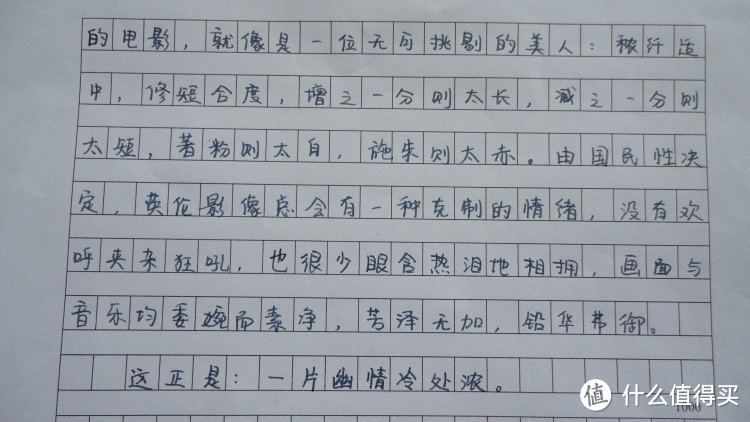 的电影，就像是一位无可挑剔的美人：秾纤适
中，修短合度，增之一分则太长，减之一分则
太短，著粉则太白，施朱则太赤。由国民性决
定，英伦影像总会有一种克制的情绪，没有欢
呼夹杂狂吼，也很少眼含热泪地相拥，画面与
音乐均委婉而素净，芳泽无加，铅华弗御。
这正是：一片幽情冷处浓。
1000
值 什么值得买